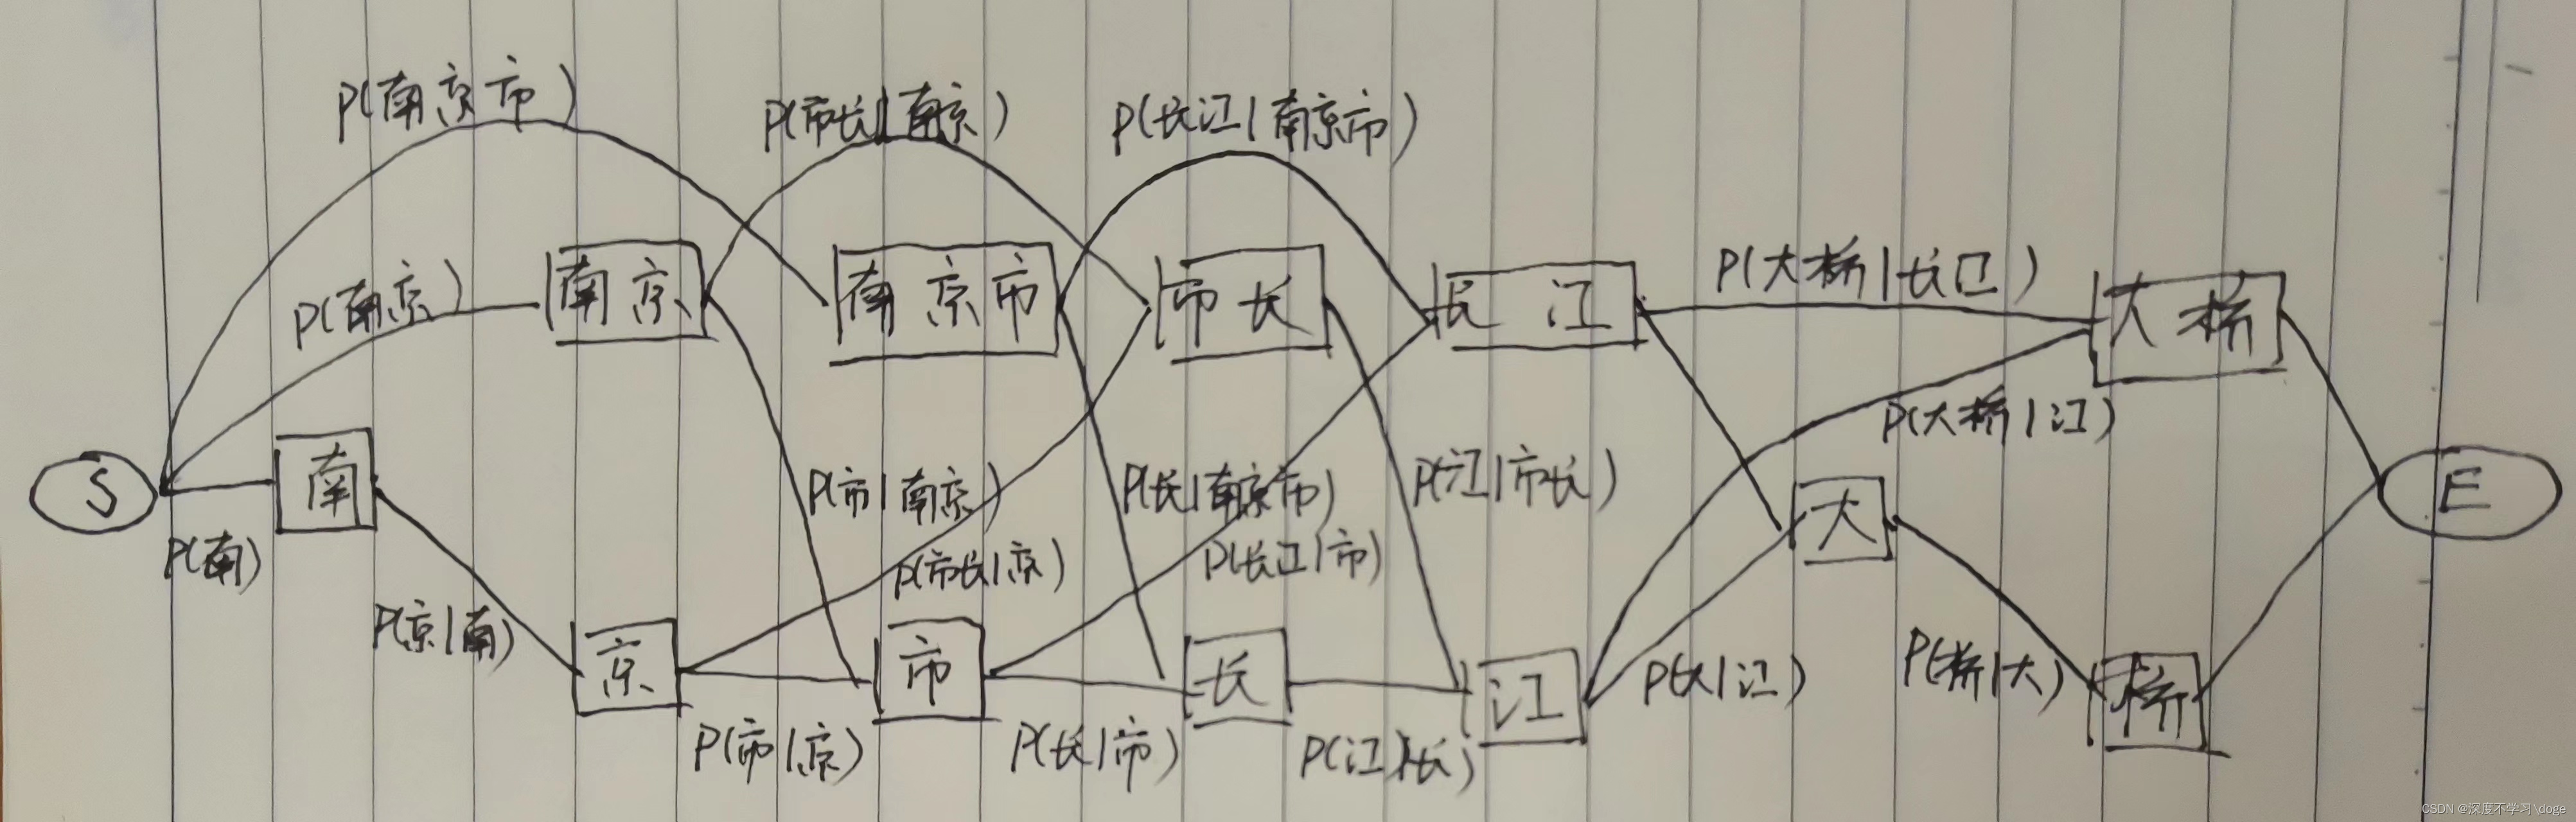 P(南京市)
P(市长|南京)
P(长江|南京市)
P(南京)
南京
南京市
市长
长江
P(大桥|长江)
大桥
P(大桥|江)
S
南
P(南)
P(市|南京)
P(长|南京市)
P(江|市长)
大
E
P(市长|京)
P(长江|市)
P(京|南)
京
市
长
江
P(大|江)
P(桥|大)
桥
P(市|京)
P(长|市)
P(江|长)
CSDN @深度不学习\doge